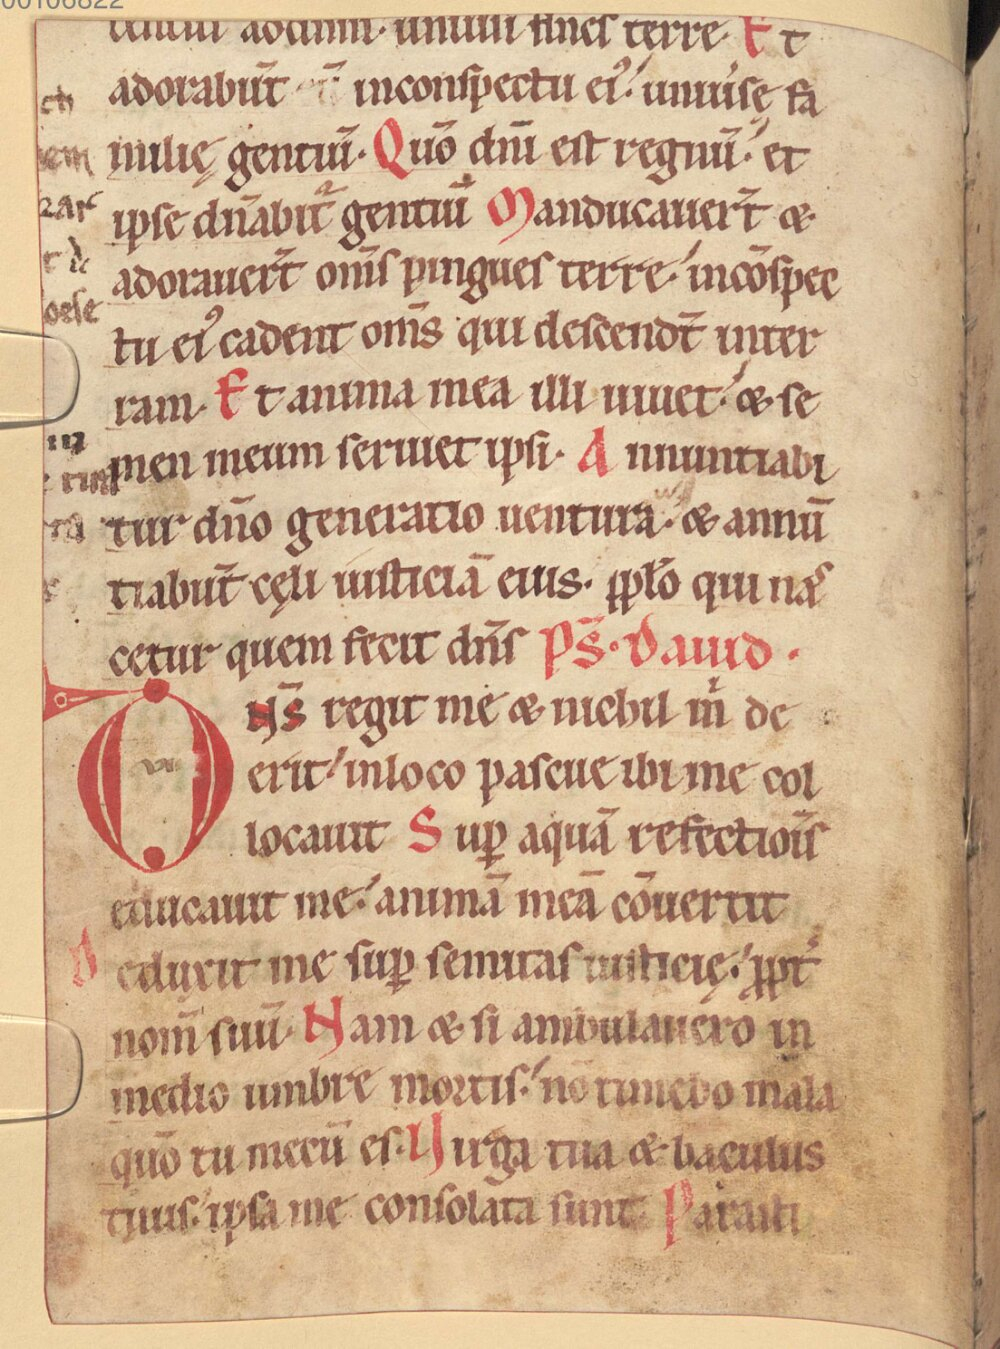 00106822
tentur ad dnm. uniusi fines terre. Et
adorabūt inconspectu ei⁹: uniuersę fa
milię gentiū. Quō dn̄i est regnū: et
ipse dn̄abit᷑ gentiū Manducauer̄t &
adorauer̄t om̄s pingues terre: incōspec
tu ei⁹ cadent om̄s qui descend̄t inter
ram. Et anima mea illi uiuet: & se
men meum seruiet ipsi. Annuntiabi
tur dn̄o generatio uentura: & annū
tiabūt cęli iusticiā eius. pplō qui nas
cetur quem fecit dn̄s Ps̄. Dauid.
Dn̄s regit me & nichil m̄ de
erit: inloco pascue ibi me col
locauit Suꝑ aquā refectiōis
educauit me: animā meā cōuertit
Deduxit me suꝑ semitas iusticię: ꝓpt̄
nom̄ suū. Nam & si ambulauero in
medio umbre mortis: nō timebo mala
quō tu mecū es. Uirga tua & baculus
tuus: ipsa me consolata sunt Parasti